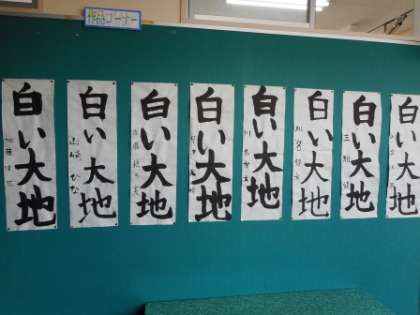 作品コーナー
白い大地
白い大地
白い大地
白い大地
白い大地
白い大地
白い大地
白い大地